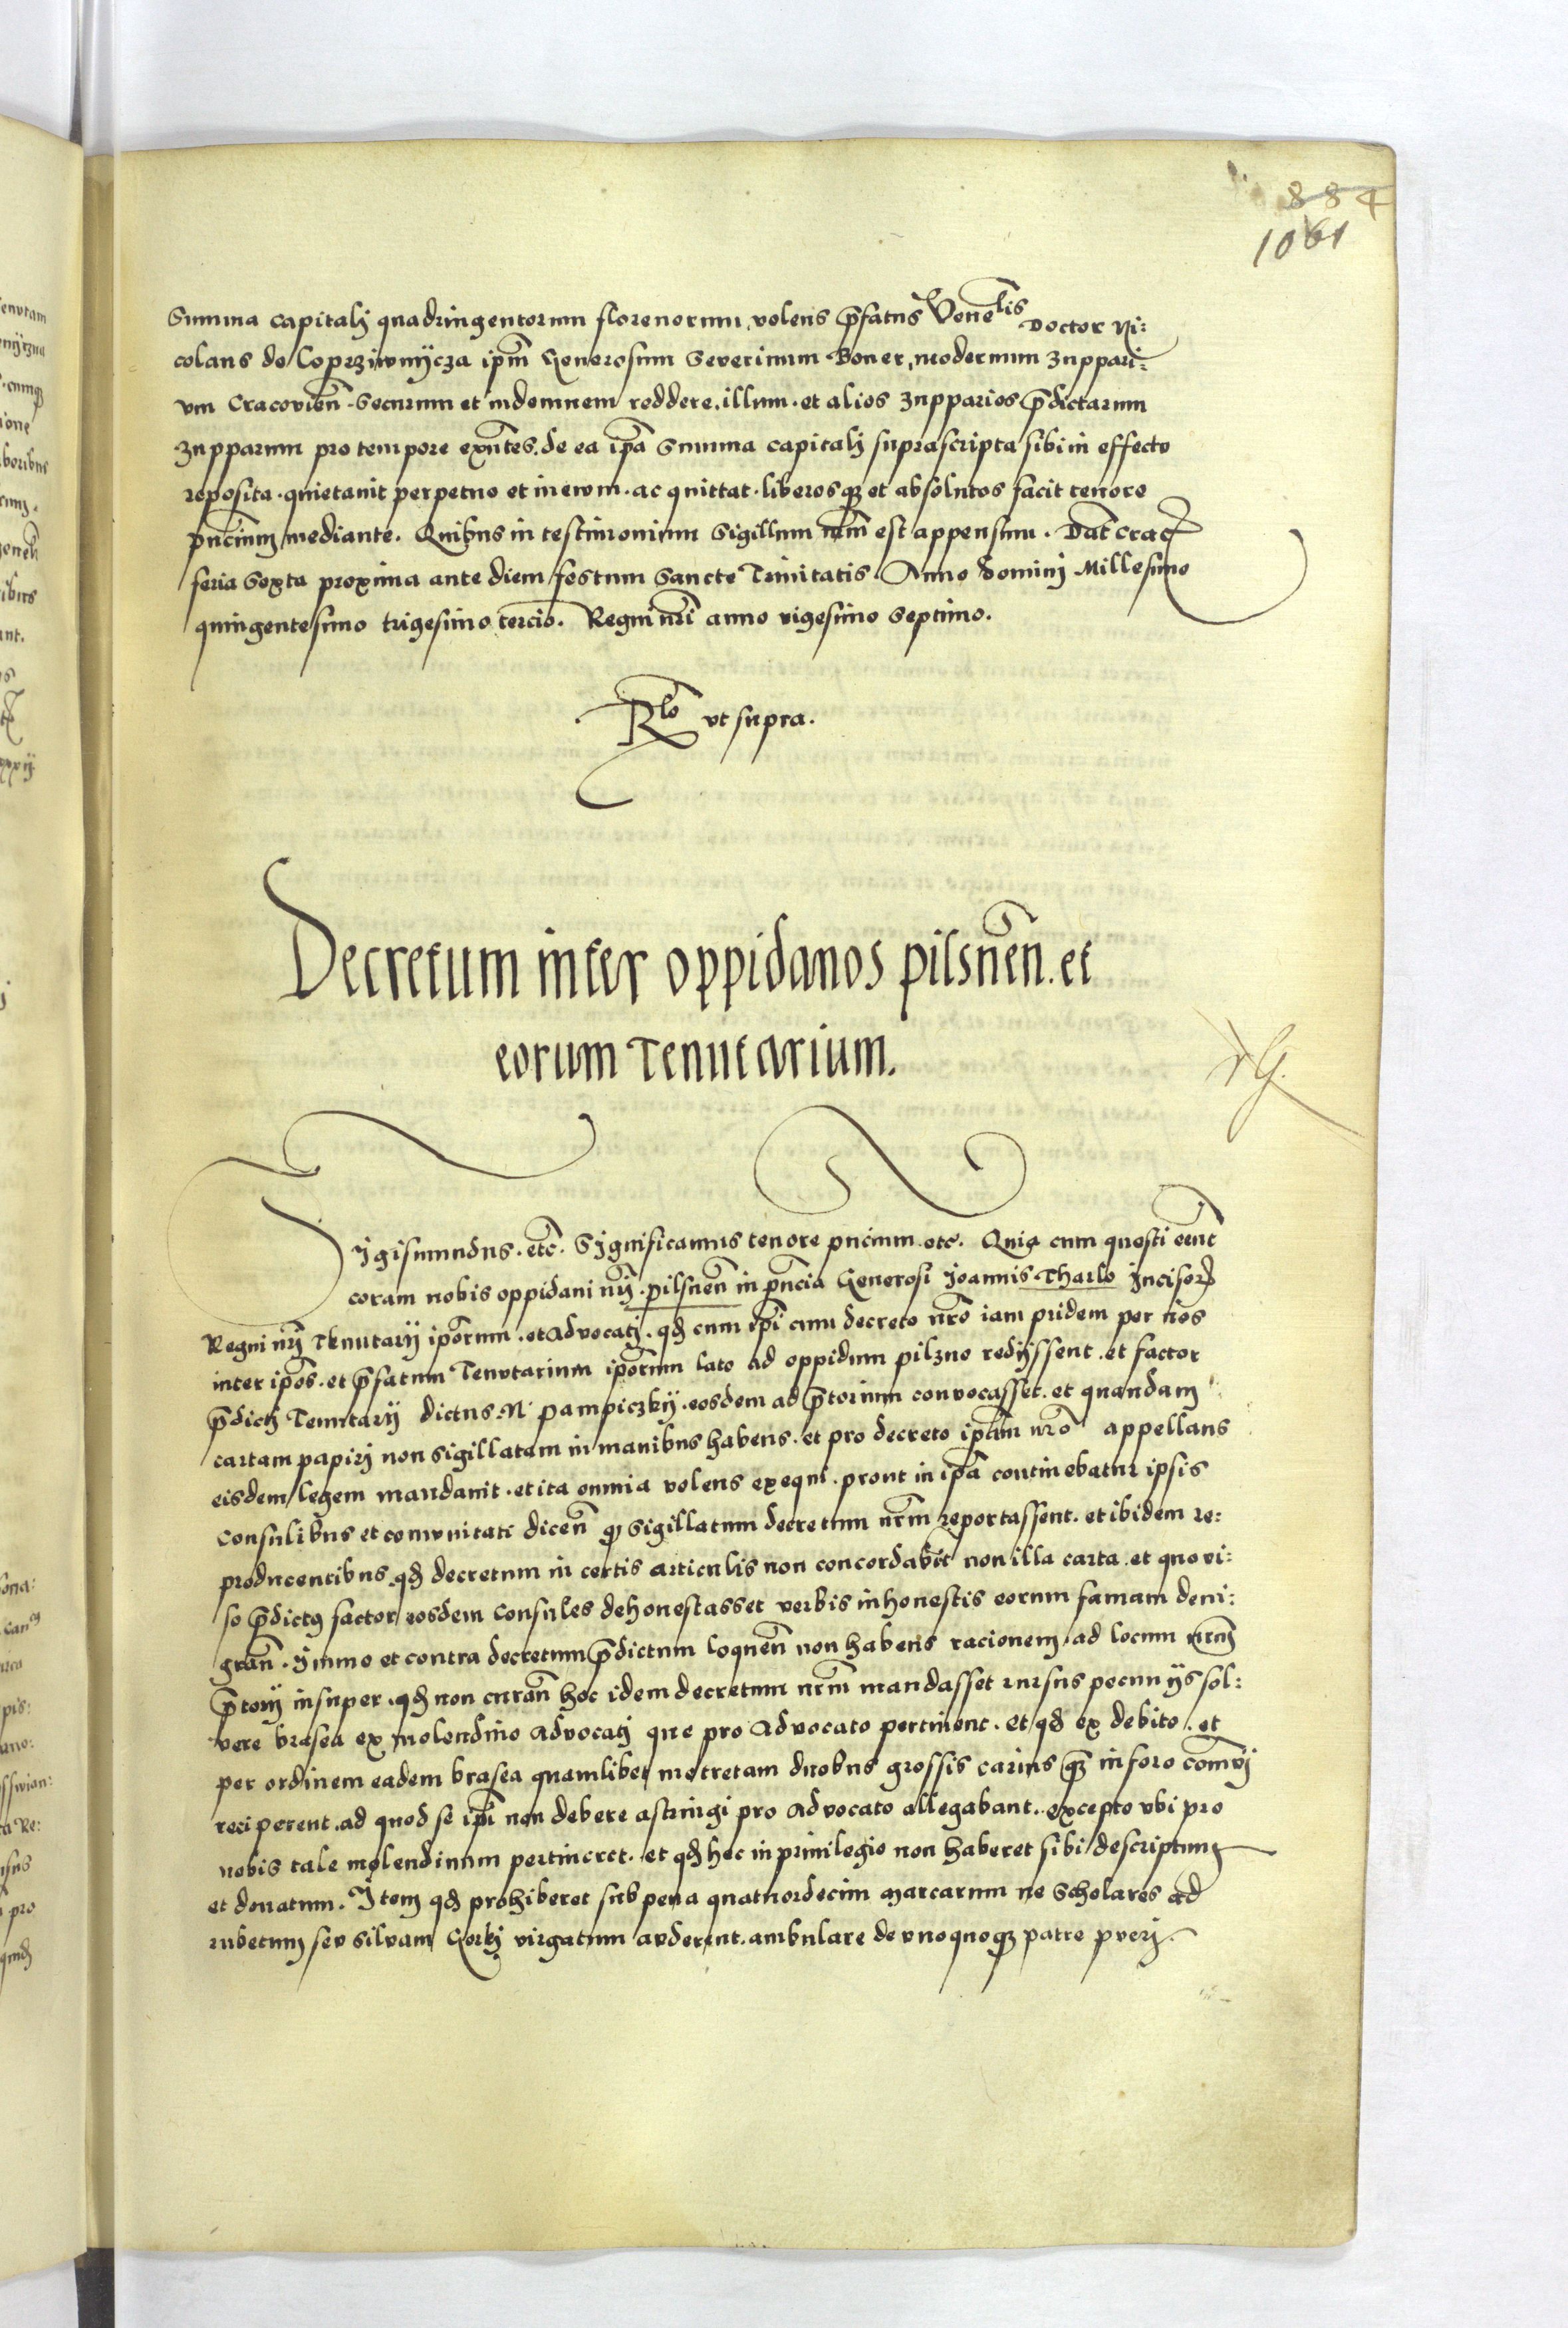 884
1061
Summa capitalj quadringentorum florenorum, volens p̄fatus Vene^lis Doctor Ni:
colaus de Coprziwnÿcza ip̄m Generosum Severinum Boner, modernum zuppari:
vm Cracovień. Securum et indemnem reddere. illum. et alios zupparios p̄dictarum
zupparum pro tempore exn̄tes. de ea ip̄a Summa capitalj suprascripta sibi in effectu
reposita. quietauit perpetuo et in ewm. ac quittat. liberosqȝ et absolutos facit tenore
pn̄cium mediante. Quibus in testimonium Sigillum nr̄m est appensum. Dat̄ Crac
feria Sexta proxima ante diem festum Sancte Trinitatis. Anno dominj Millesimo
quingentesimo trigesimo tercio. Regni nr̄i anno vigesimo Septimo.
R^lo vt supra.
Decretum inter oppidanos pilsnen̄. et
eorum Tenutarium.
Sigismundus. etc̄. Significamus tenore pn̄cium. etc. Quia cum questi eēnt
coram nobis oppidani nr̄j. pilsnen̄ in pn̄cia Generosi Joannis Tharlo Incisor
Regni nr̄j Tenutarij ip̄orum. et Advocatj. qđ cum ip̄i cum decreto nr̄o iam pridem per nos
inter ip̄os. et p̄fatum Tenutarium ip̄orum lato ad oppidum pilzno redÿssent. et factor
p̄dictj Tenutarij dictus. N. Pampiczkÿ. eosdem ad p̄torium convocasset. et quandam
cartam papirj non sigillatam in manibus habens. et pro decreto ip̄am nr̄o appellans
eisdem legem mandauit. et ita omnia volens exequi. prout in ip̄a continebatur ipsis
Consulibus et comvnitati dicen̄ qđ sigillatum decretum nr̄m reportassent. et ibidem re:
producentibus. qđ decretum in certis articulis non concordabit non illa carta. et quo vi:
so p̄dictus factor eosdem Consules dehonestasset verbis inhonestis eorum famam deni:
gran̄. Ymmo et contra decretum p̄dictum loquen̄ non habens racionem. ad locum nr̄m
p̄torij insuper. qđ non curan̄ hoc idem decretum nr̄m mandasset rursus pecunijs sol:
vere brasea ex molendino advocatj que pro Advocato pertinent. Et qđ ex debito. et
per ordinem eadem brasea quamlibet metretam duobus grossis carius qȝ in foro com̄vj
reciperent. ad quod se ip̄i non debere astringi pro Advocato allegabant. excepto vbi pro
nobis tale molendinum pertineret. et qđ hec in priuilegio non haberet sibi descriptum
et donatum. Item qđ prohiberet sub pena quatuordecim marcarum ne Scholares ad
rubetum seu siluam Gorkj virgatum auderent. ambulare de vnoquoqȝ patre puerj.